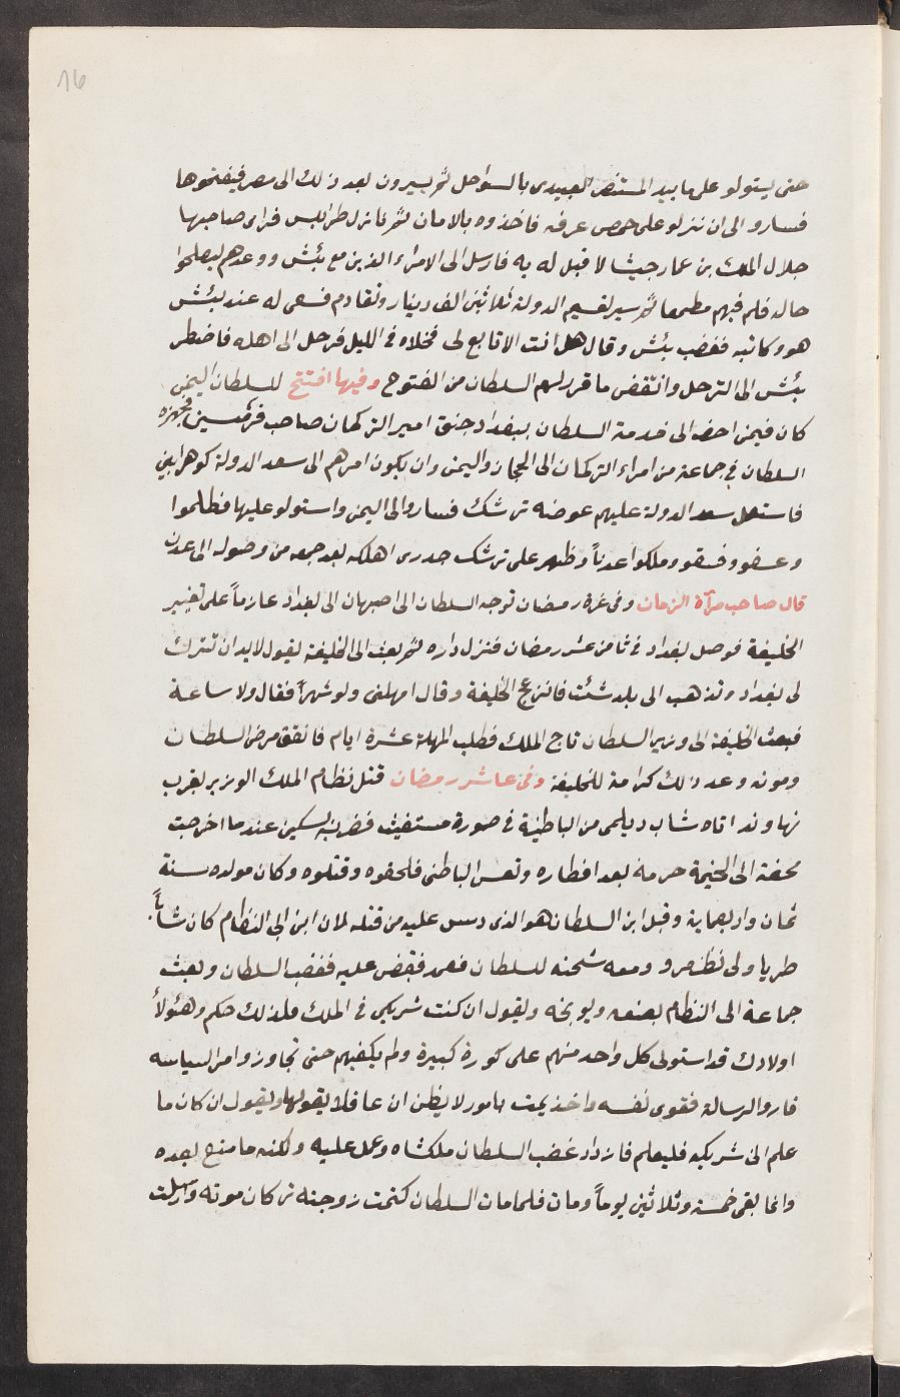 16
حتى يستولو على ما بيد المستنصر العبيدى بالسواحل ثم يسيرون بعد ذلك الى مصر فيفتحوها
فسارو الى ان نزلو على حمص عرفه فاخذوه بالامان ثم نازل طرابلس فراى صاحبها
جلال الملك بن عمار جيشا لا قبل له به فارسل الى الامراء الذين مع تتش ووعدهم ليصلحوا
حاله فلم فيهم مطمعا ثم سير لقسيم الدولة ثلاثين الف دينار وتقادم فسعى له عند تتش
هو وكاتبه فغضب تتش وقال هل انت الا تابع لى فخلاه فى الليل فرحل الى اهله فاضطر
تتش الى الترحل وانتقض ما قرر لهم السلطان من الفتوح وفيها افتتح للسلطان اليمن
كان فيمن احضر الى خدمة السلطان ببغداد جنق امير التركمان صاحب قرميسين فجهزه
السلطان فى جماعة من امراء التركمان الى الحجاز واليمن وان يكون امرهم الى سعد الدولة كوهرايين
فاستعمل سعد الدولة عليهم عوضه ترشك فساروا الى اليمن واستولو عليها فظلموا
وعسفو وفسقو وملكوا عدناً وظهر على ترشك جدرى اهلكه بعد جمعه من وصوله الى عدن
قال صاحب مرآة الزمان وفى غرة رمضان توجه السلطان الى اصبهان الى بغداد عازماً على تغيير
الخليفة فوصل بغداد فى ثامن عشر رمضان فنزل داره ثم بعث الى الخليفة يقول لابد ان تترك
لى بغداد وتذهب الى بلد شئت فانزعج الخليفة وقال امهلنى ولو شهراً فقال ولا ساعة
فبعث الخليفة الى وزير السلطان تاج الملك فطلب المهلة عشرة ايام فاتفق مرض السلطان
وموته وعد ذلك كرامة للخليفة وفى عاشر رمضان قتل نظام الملك الوزير بقرب
نهاوند اتاه شاب ديلمى من الباطنية فى صورة مستغيث فضربه بسكين عندما اخرجت
محفته الى الخيمة حرمه بعد افطاره وتعس الباطنى فلحقوه وقتلوه وكان مولده سنة
ثمان واربعماية وقيل ابن السلطان هو الذى دسس عليه من قتله لان ابن ابن النظام كان شاباً
طريا ولى نظر مرو ومعه شحنه للسلطان فعمد فقبض عليه فغضب السلطان وبعث
جماعة الى النظام يعنفه ويوبخه ويقول ان كنت شريكى فى الملك فلذلك حكم وهئولأ
اولادك قد استولى كل واحد منهم على كورة كبيرة ولم يكفيهم حتى تجاوزوا امر السياسه
فادو الرسالة فقوى نفسه واخذ يمت بامور لا يظن ان عاقلا يقولها ويقول ان كان ما
علم انى شريكه فليعلم فازداد غضب السلطان ملكشاه وعمل عليه ولكنه ما متع بعده
وانما بقى خمسة وثلاثين يوماً ومات فلما مات السلطان كتمت زوجته تركان موته وارسلت